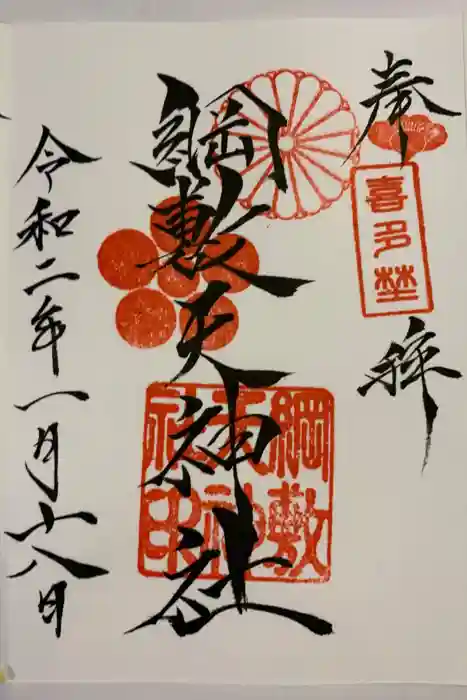 奉拝
喜多埜
綱敷天神社
綱敷
天神
社印
令和二年一月廿八日